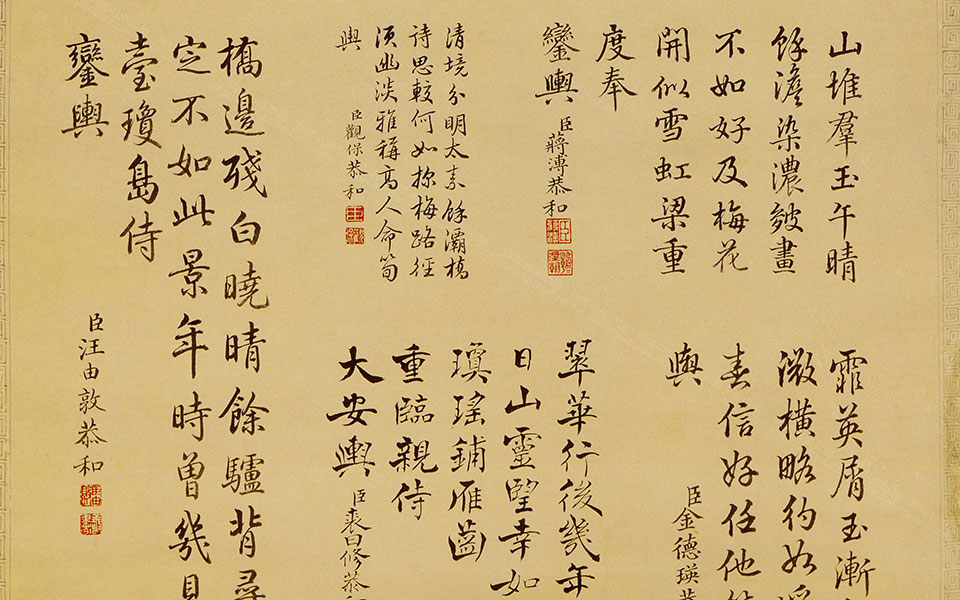 山堆羣玉午晴
餘澹染濃皴畫
不如好及梅花
開似雪虹梁重
度奉
鑾輿
臣蔣溥恭和
清境分明太素餘灞橋
詩思較何如探梅路徑
須幽淡雅稱高人命筍
輿
臣觀保恭和
霏英屑玉漸
微橫略彴如
春信好任他
輿
臣金德瑛恭
翠華行後幾年
日山靈望幸如
瑤鋪雁齒
重臨親侍
大安輿
臣裘曰修恭和
橋邊殘白曉晴餘驢背尋
定不如此景年時曾幾見
臺瓊島侍
鑾輿
臣汪由敦恭和